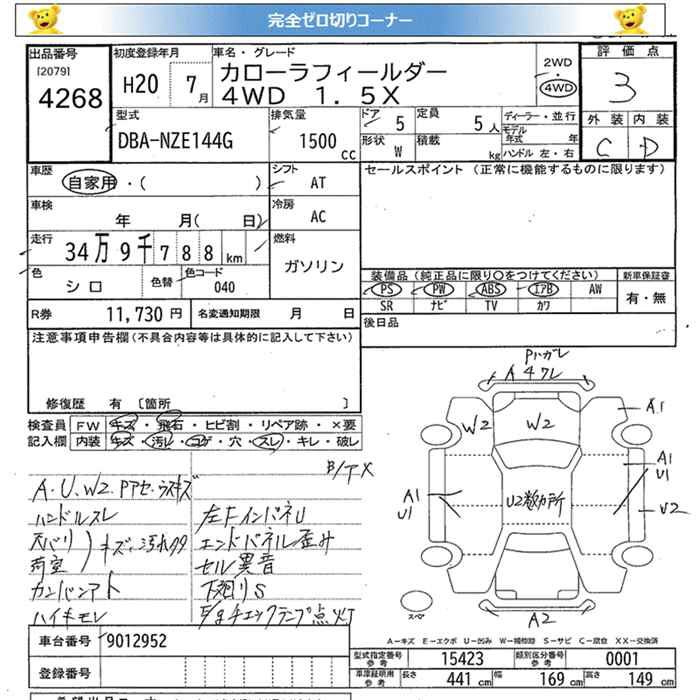 完全ゼロ切りコーナー
出品番号
[2079]
4268
初度登録年月
H20 7月
車名・グレード
カローラフィールダー
4WD 1.5X
2WD
・
4WD
評価点
3
外装 内装
C D
型式
DBA-NZE144G
排気量
1500
cc
ドア 5
定員 5人
形状 W
積載 kg
ディーラー・並行
モデル年式 年
ハンドル 左・右
車歴
自家用・( )
シフト
AT
セールスポイント (正常に機能するものに限ります)
車検
年 月( 日)
冷房
AC
走行
34万9千788km
燃料
ガソリン
色
シロ
色替
色コード
040
装備品(純正品に限り○をつけてください)
新車保証書
PS PW ABS エアB AW
SR ナビ TV カワ
有・無
R券 11,730円
名変通知期限 月 日
後日品
注意事項申告欄(不具合内容等は具体的に記入して下さい)
修復歴 有 〔箇所 〕
検査員記入欄
FW キズ・飛石・ヒビ割・リペア跡・×要
内装 キズ・汚レ・コゲ・穴・スレ・キレ・破レ
A・U、W2、
ハンドルスレ
天バリ
荷室
キズ、汚レ
カンバンアト
ハイキモレ
左FインパネU
エンドパネル歪み
セル異音
下廻りS
E/gチェックランプ点灯
Pハガレ
A4ワレ
W2
W2
A1
A1
U1
U2数カ所
A1
U1
U2
スペア
A2
A-キズ E-エクボ U-凹み W-補修跡 S-サビ C-腐食 XX-交換済
車台番号 9012952
登録番号
型式指定番号 参考 15423
類別区分番号 参考 0001
車庫証明用 参考
長さ 441 cm 幅 169 cm 高さ 149 cm